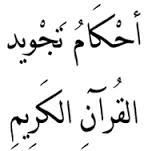 أَحْكَامُ تَجْوِيد
القُرآنِ الكَرِيمِ